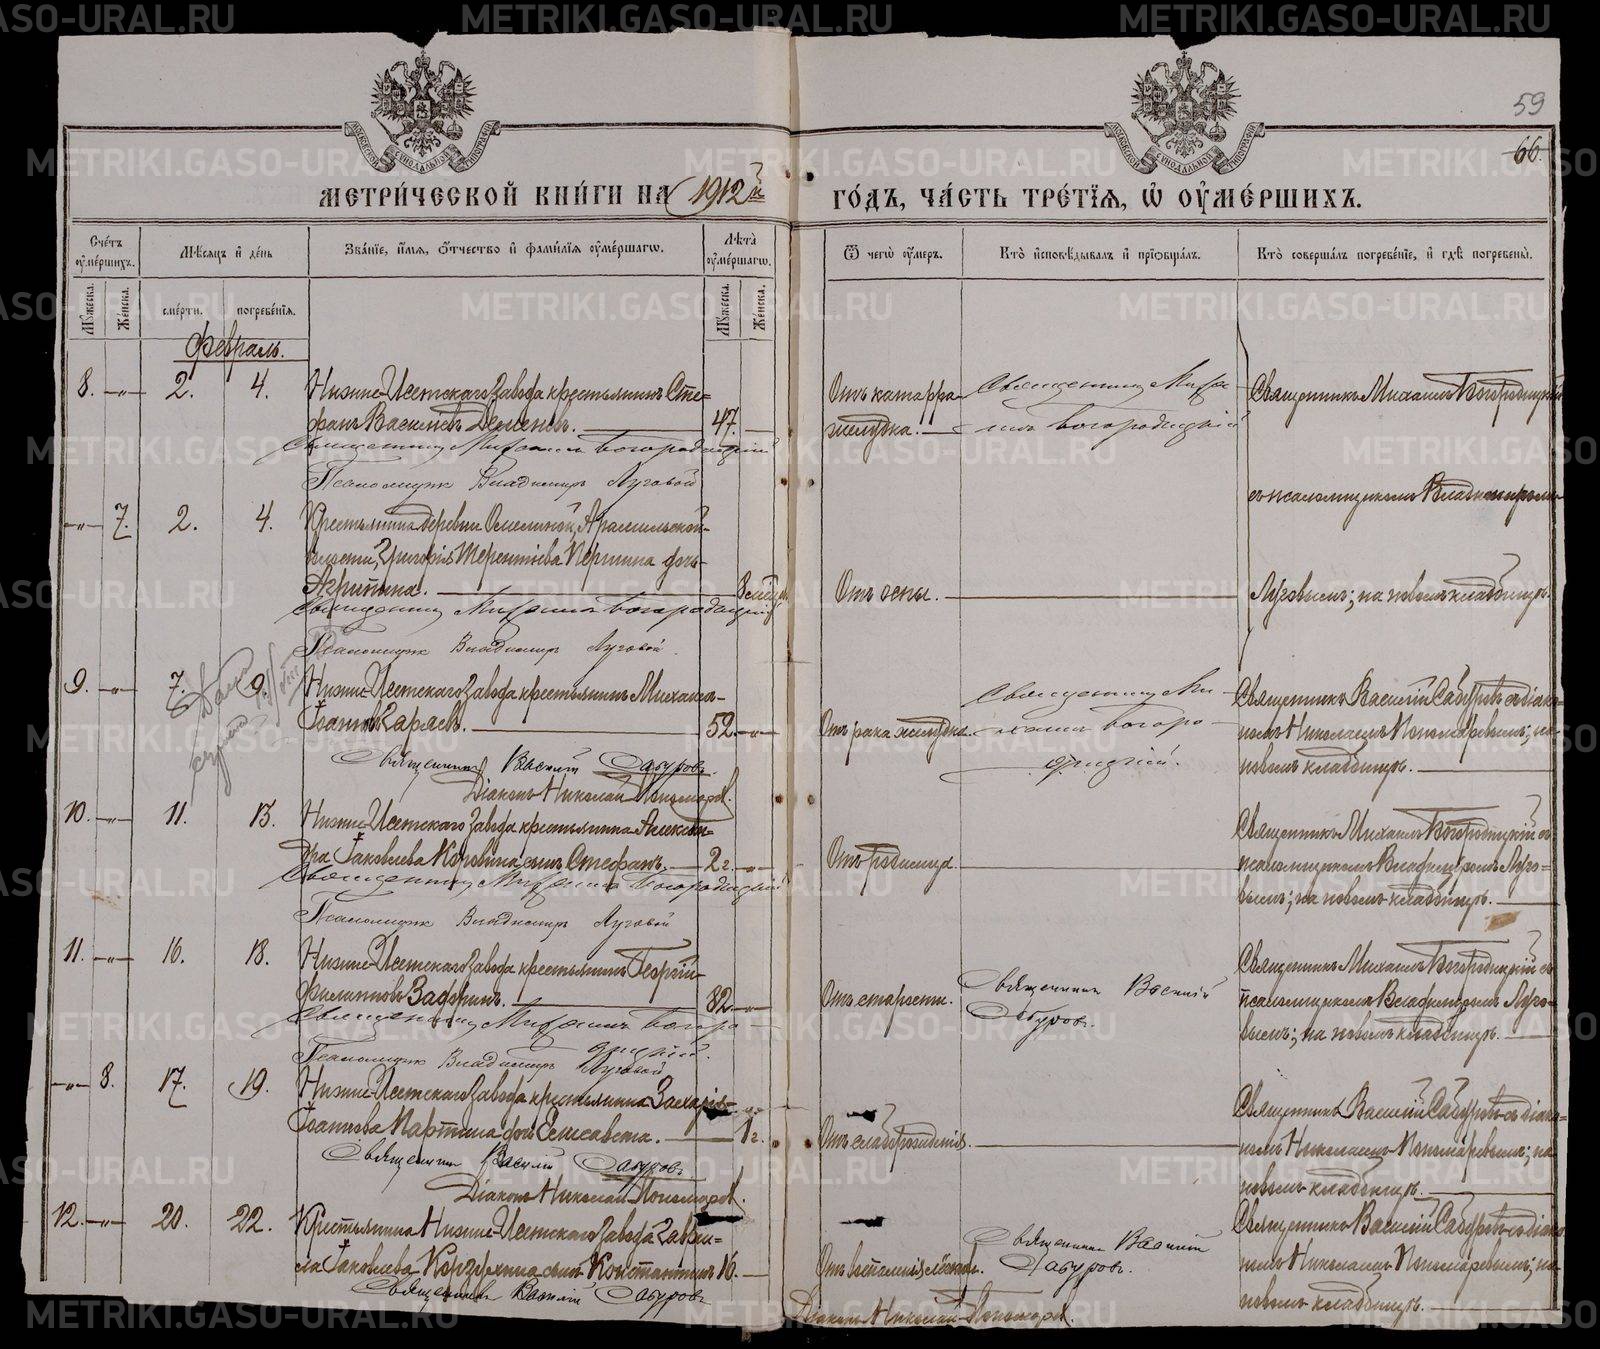 METRIKI.GASO-URAL.RU
59
66.
МОСКОВСКОЙ СУНОДАЛЬНОЙ ТИПОГРАФІИ
МЕТРИ́ЧЕСКОЙ КНИ́ГИ НА 1912й ГО́ДЪ, ЧА́СТЬ ТРЕ́ТІЯ, Ѡ ОУ҆МЕ́РШИХЪ.
Сче́тъ оу҆ме́ршихъ.
Мѣ́сяцъ и҆ де́нь
Зва́нїе, и҆́мя, ѻ҆́тчество и҆ фами́лїя оу҆ме́ршагѡ.
Лѣ́та оу҆ме́ршагѡ.
Ѿ чегѡ̀ оу҆́меръ.
Кто̀ и҆сповѣ́дывалъ и҆ прїѡбща́лъ.
Кто̀ соверша́лъ погребе́нїе, и҆ гдѣ̀ погребены̀.
Му́жеска.
Же́нска.
сме́рти.
погребе́нїя.
Му́жеска.
Же́нска.
Февраль.
8. —„— 2. 4. Нижне-Исетскаго завода крестьянинъ Сте-
фанъ Васильевъ 47.
Священникъ Михаилъ Богородицкій
Псаломщикъ Владиміръ Луговой
Отъ катарра
желудка.
Священникъ Миха-
илъ Богородицкій
Священникъ Михаилъ Богородицкій
съ псаломщикомъ Владиміромъ
Луговымъ; на новомъ кладбищѣ.
—„— 7. 2. 4. Крестьянина деревни Арамильской
волости, Григорія Терентіева дочь
Агрипина.
Священникъ Михаилъ Богородицкій
Псаломщикъ Владиміръ Луговой.
Отъ оспы.
9. —„— 7. 9. Нижне-Исетскаго завода крестьянинъ Михаилъ
Іоанновъ 52. —„—
Священникъ Василій Сабуровъ.
Діаконъ Николай Пономаревъ.
Отъ рака желудка.
Священникъ Ми-
хаилъ Богоро-
дицкій.
Священникъ Василій Сабуровъ съ діако-
номъ Николаемъ Пономаревымъ; на
новомъ кладбищѣ.
10. —„— 11. 13. Нижне-Исетскаго завода крестьянина Алексан-
дра Іаковлева сынъ Стефанъ. 2 г. —„—
Священникъ Михаилъ Богородицкій
Псаломщикъ Владиміръ Луговой
Отъ родимца.
Священникъ Михаилъ Богородицкій съ
псаломщикомъ Владиміромъ Луго-
вымъ; на новомъ кладбищѣ.
11. —„— 16. 18. Нижне-Исетскаго завода крестьянинъ Георгій
Филипповъ 82. —„—
Священникъ Михаилъ Богоро-
дицкій.
Псаломщикъ Владиміръ Луговой
Отъ старости.
Священникъ Василій
Сабуровъ.
Священникъ Михаилъ Богородицкій съ
псаломщикомъ Владиміромъ Луго-
вымъ; на новомъ кладбищѣ.
—„— 8. 17. 19. Нижне-Исетскаго завода крестьянина Захаріи
Іоаннова дочь Елисавета. 1 г.
Священникъ Василій Сабуровъ
Діаконъ Николай Пономаревъ.
Отъ слаборожденія.
Священникъ Василій Сабуровъ съ діако-
номъ Николаемъ Пономаревымъ; на
новомъ кладбищѣ.
12. —„— 20. 22. Крестьянина Нижне-Исетскаго завода Гаврі-
ила Іаковлева сынъ Константинъ 16. —
Священникъ Василій Сабуровъ
Діаконъ Николай Пономаревъ.
Отъ воспаленія
Священникъ Василій
Сабуровъ.
Священникъ Василій Сабуровъ съ діако-
номъ Николаемъ Пономаревымъ; на
новомъ кладбищѣ.